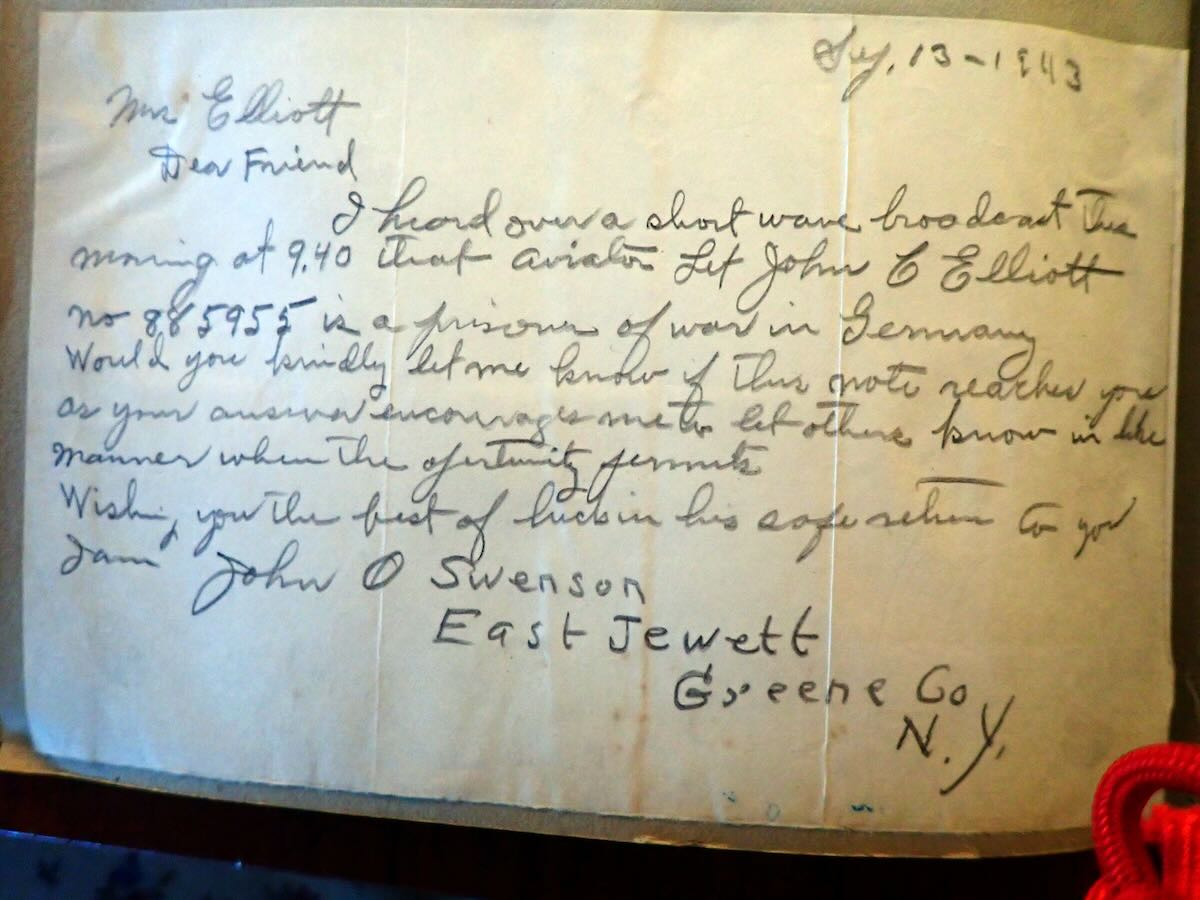 13-1943
Mrs Elliott
Dear Friend
I heard over a short wave broadcast this
morning at 9.40 that aviator Lt John C Elliott
no 885955 is a prisoner of war in Germany
Would you kindly let me know if this note reaches you
as your answer encourages me to let others know in like
manner when the oportunity permits
Wishing you the best of luck in his safe return to you
I am John O Swenson
East Jewett
Greene Co
N.Y.